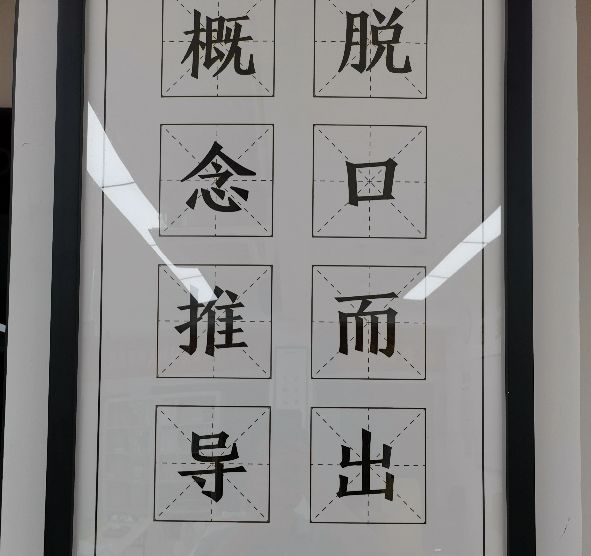 脱口而出
概念推导